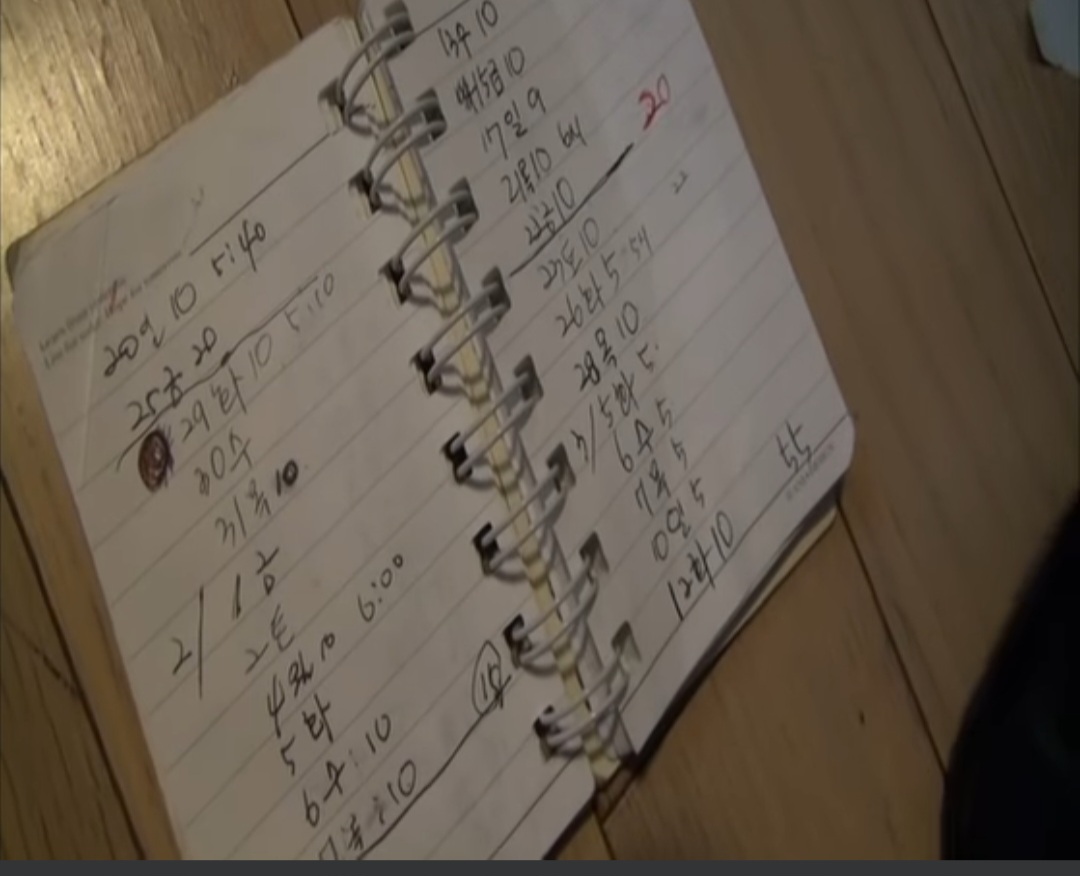 20일 10 5:40
25금 20
29화 10 5:10
30수
31목 10
2/ 1금
2토
4월 10 6:00
5화
6수 : 10
7목 : 10
15
13수 10
15금 10
17일 9
21목 10
20
22
10
23토 10
26화 5
28목 10
3/ 5화 5
6수 5
7목 5
10일 5
12화 10
55